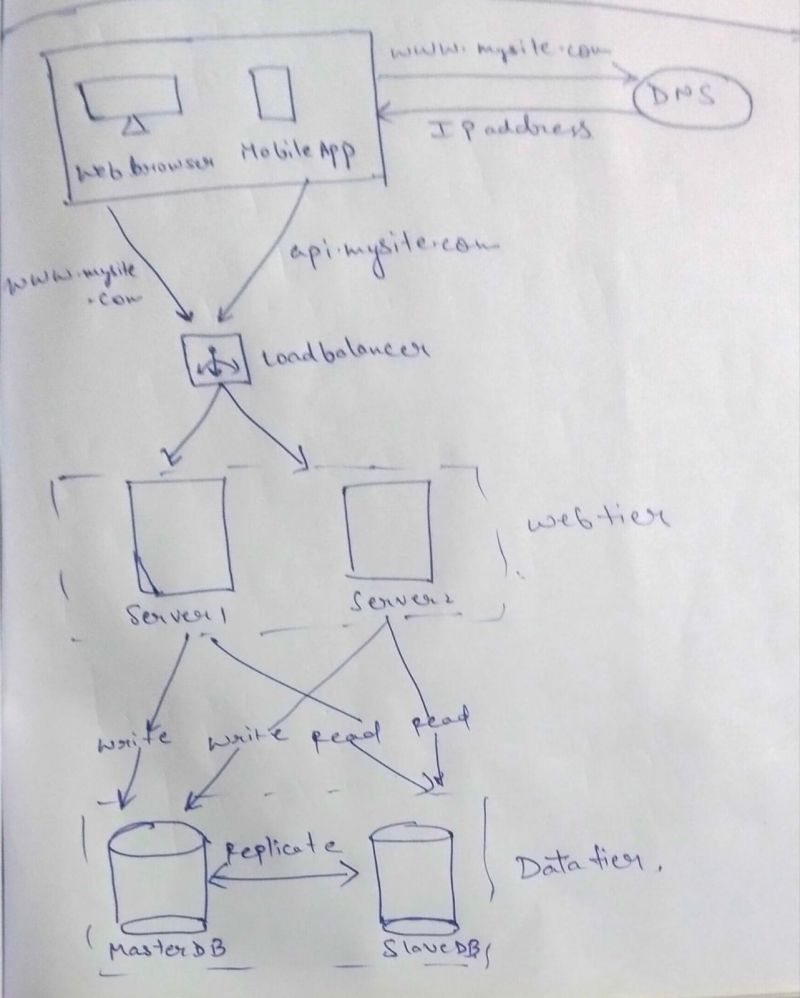 www.mysite.com
DNS
IP address
Web browser
Mobile App
www.mysite
.com
api.mysite.com
Loadbalancer
Web tier
Server1
Server2
write
write
Read
Read
Replicate
Data tier.
Master DB
Slave DB